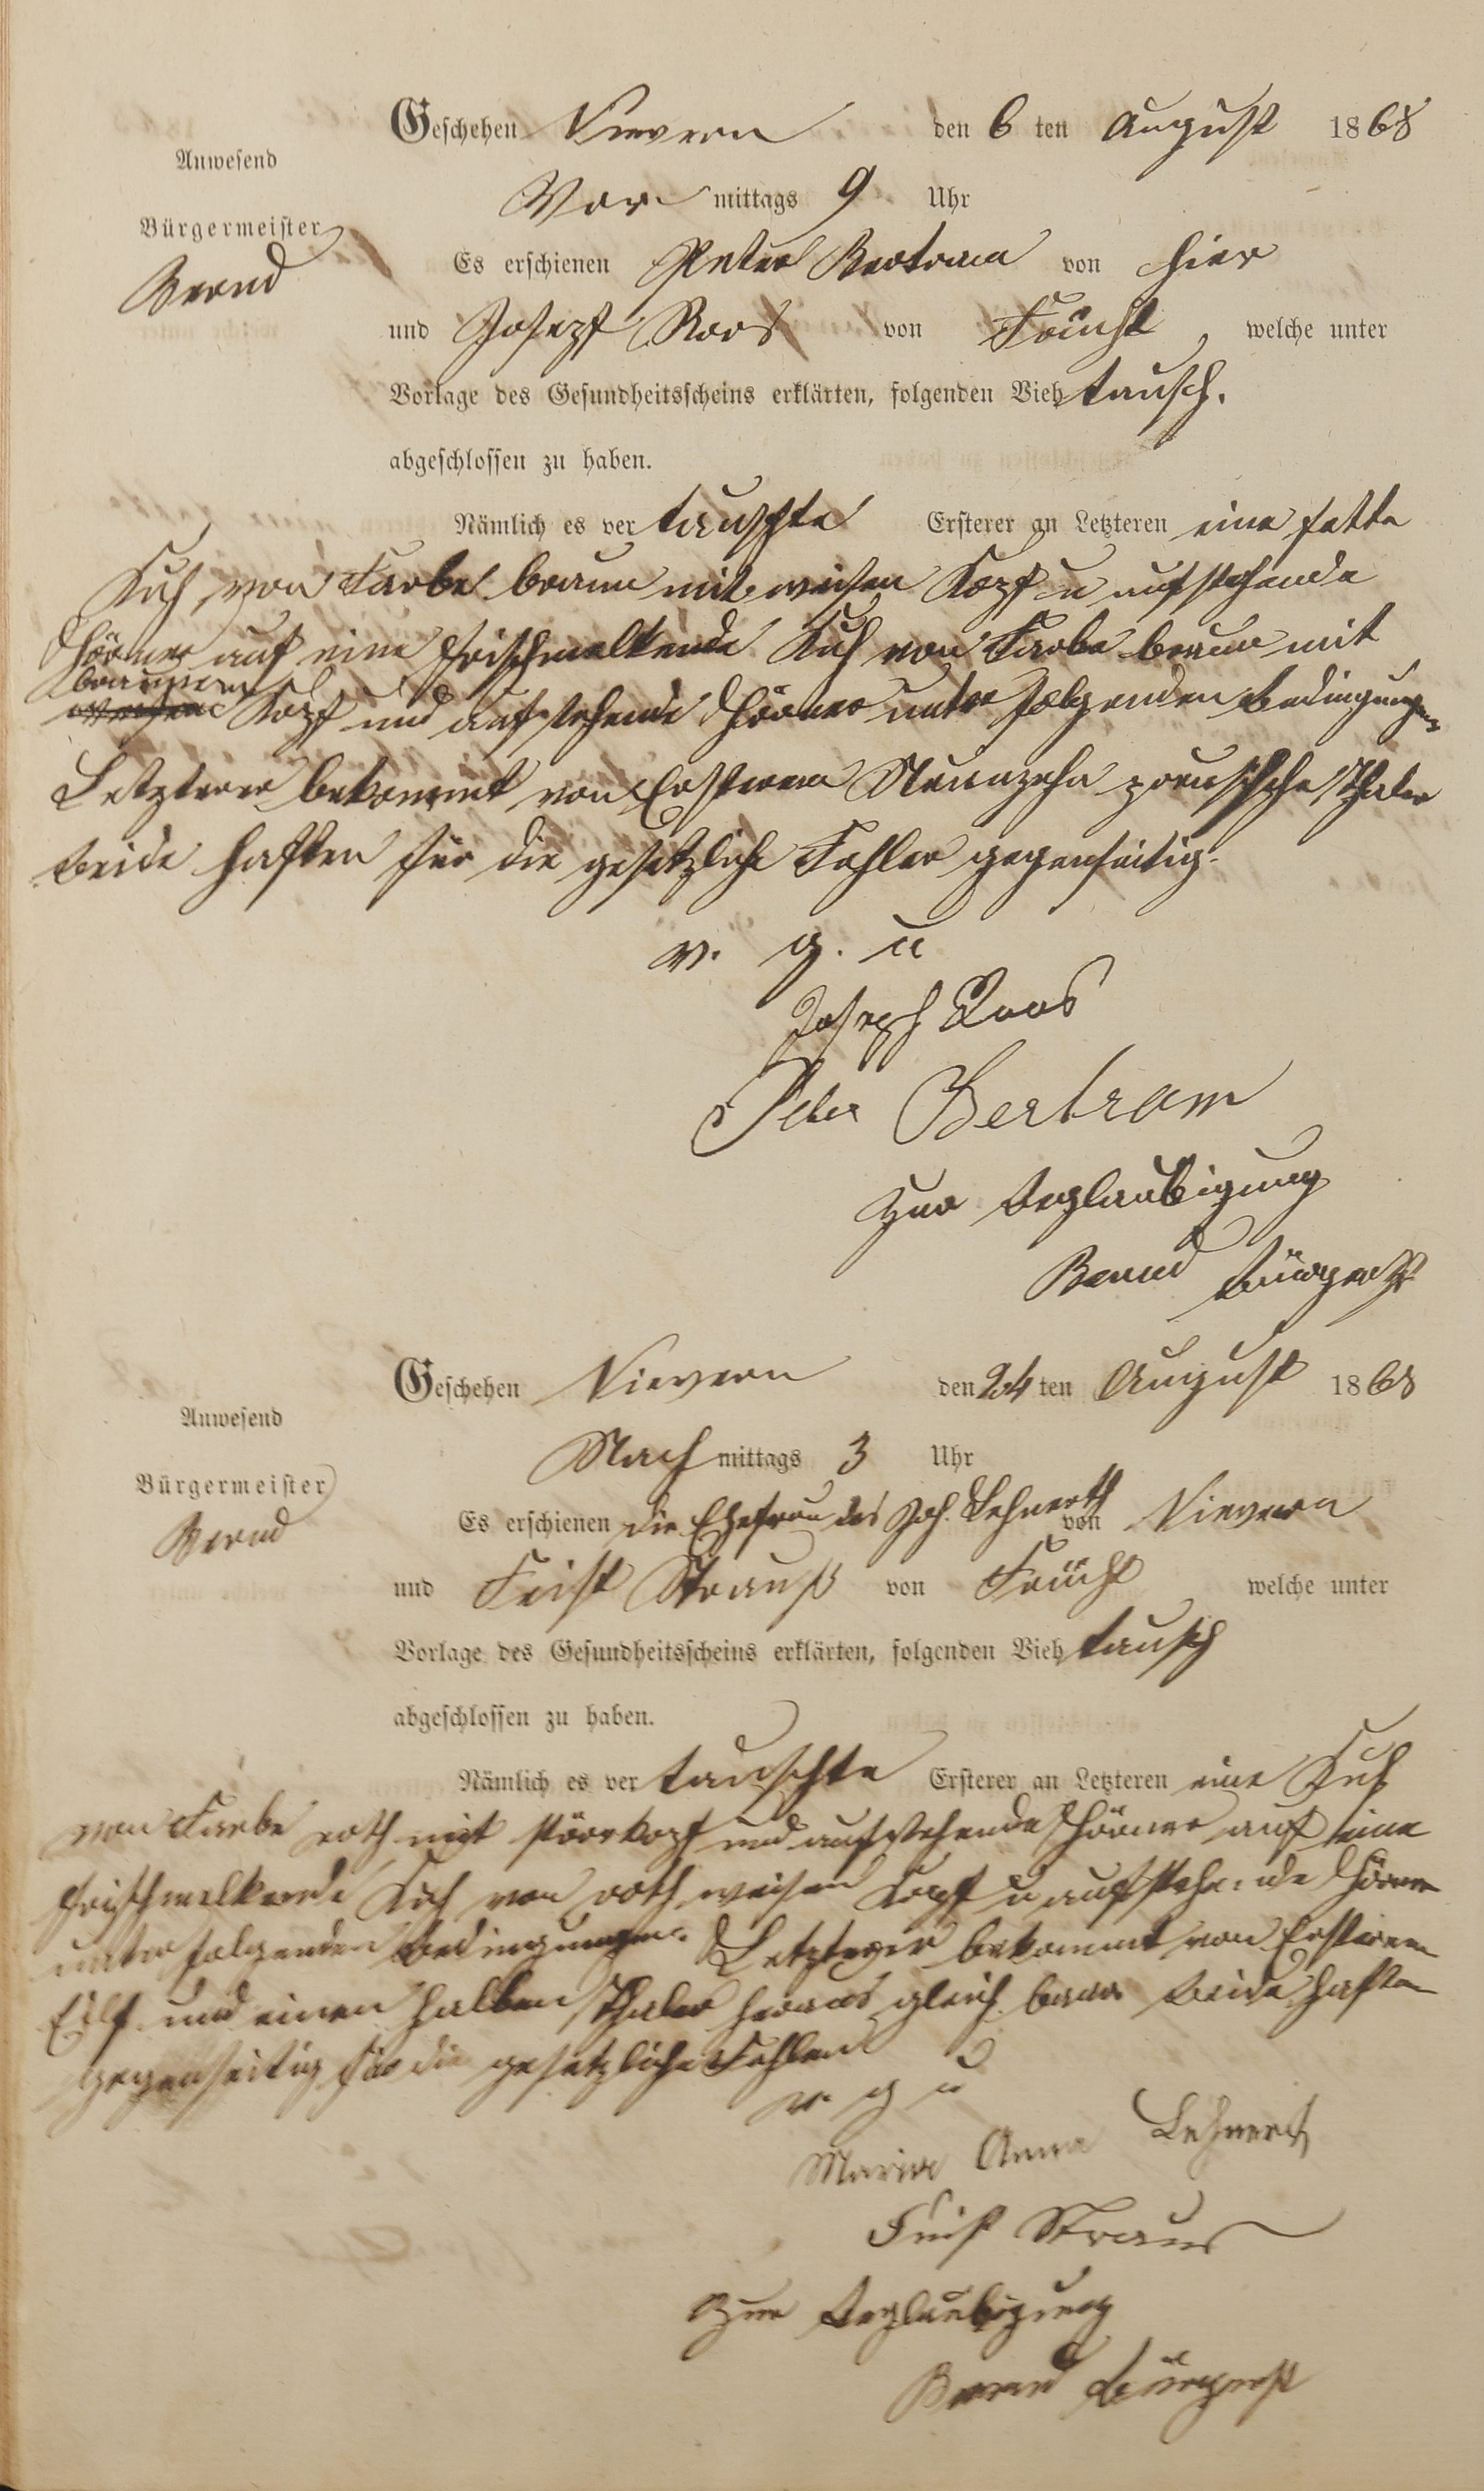 Geschehen Nievern den 6 ten August 1868
Anwesend
Vor mittags 9 Uhr
Bürgermeister
Bernd
Es erschienen Peter Bertram von hier
und Joseph Roos von Frücht, welche unter
Vorlage des Gesundheitsscheins erklärten, folgenden Vieh tausch.
abgeschlossen zu haben.
Nämlich es ver tauschte Ersterer an Letzteren eine fette
Kuh von Farbe braun mit weisen Kopf u aufstehende
Hörner auf eine frischmelkende Kuh von Farbe braun mit
braunem
weisen Kopf und aufstehende Hörner unter folgenden Bedingungen
Letzterer bekommt von Ersterem Neunzehn preusische Thaler
beide haften für die gesetzliche Fehler gegenseitig.
v. g. u
Joseph Roos
Peter Bertram
Zur Beglaubigung
Bernd Bürgerst
Geschehen Nievern den 24 ten August 1868
Anwesend
Nach mittags 3 Uhr
Bürgermeister
Bernd
Es erschienen die Ehefrau des Joh. Lehnerth von Nievern
und Feist Strauß von Frücht welche unter
Vorlage des Gesundheitsscheins erklärten, folgenden Vieh tausch
abgeschlossen zu haben.
Nämlich es ver tauschte Ersterer an Letzteren eine Kuh
von Farbe roth mit kopf und aufstehende Hörner auf eine
frischmelkende Kuh von roth weisen Kopf u aufstehende Hörner
unter folgenden Bedingungen. Letzterer bekommt von Ersterem
Eilf und einen halben Thaler heraus gleich baar beide haften
gegenseitig für die gesetzliche Fehler
v g u
Maria Anna Lehnert
Feist Straus
Zur Beglaubigung
Bernd Bürgerst